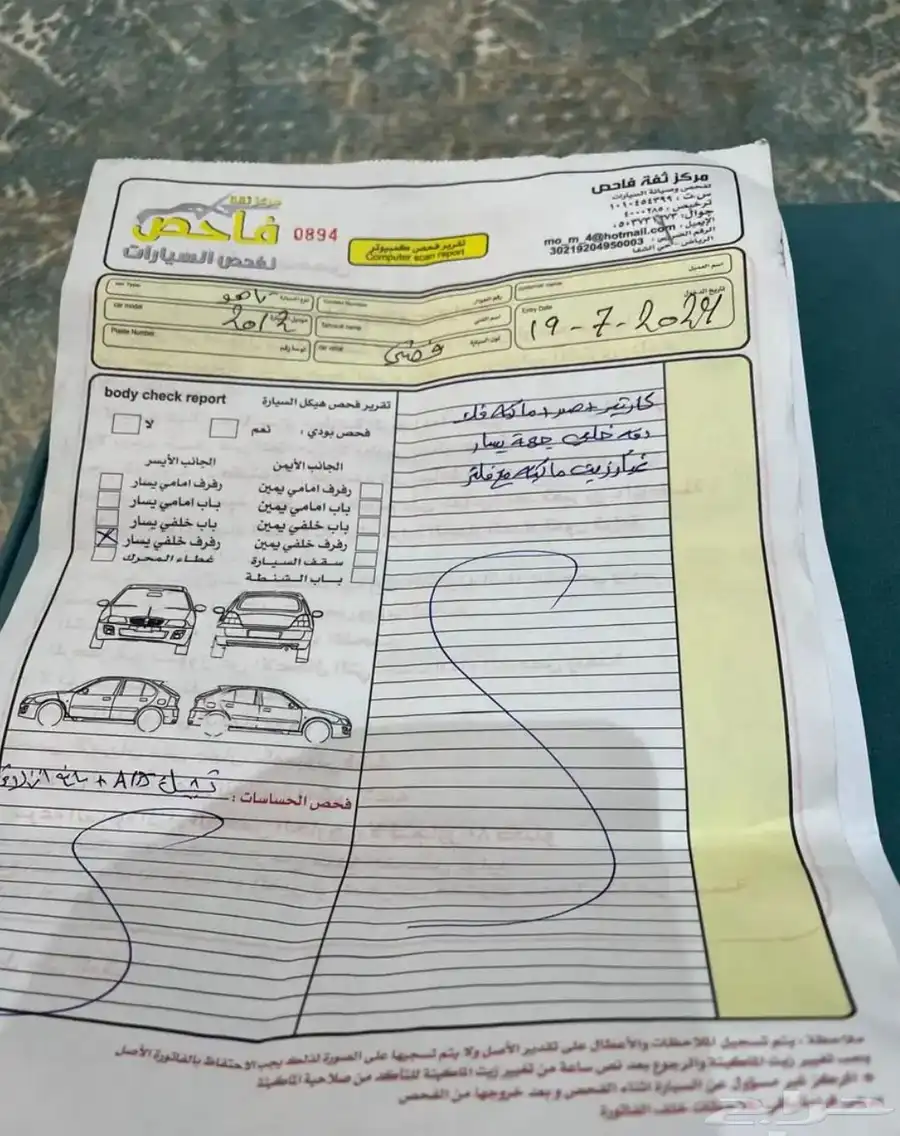 مركز ثقة فاحص
لفحص وصيانة السيارات
س.ت : ١٠١٠٤٥٤٣٩٩
ترخيص : ٤٠٠٠٢٨٥
جوال:
الإيميل: mo_m_4@hotmail.com
الرقم الضريبي: 30219204950003
الرياض - حي الشفا
مركز ثقة
فاحص
لفحص السيارات
0894
تقرير فحص كمبيوتر
Computer scan report
اسم العميل
customer name
رقم الجوال
Contact Number
نوع السيارة
car Type
تاريخ الدخول
Entry Date
19-7-2024
اسم الفني
Technical name
موديل السيارة
2012
car model
لون السيارة
فضي
car color
لوحة رقم
Plate Number
body check report
تقرير فحص هيكل السيارة
فحص بودي : نعم لا
الجانب الأيمن الجانب الأيسر
رفرف امامي يمين رفرف امامي يسار
باب امامي يمين باب امامي يسار
باب خلفي يمين باب خلفي يسار
رفرف خلفي يمين رفرف خلفي يسار X
سقف السيارة غطاء المحرك
باب الشنطة
كارتير + صدر + ماكينة فك
خلفي جهة يسار
غيار زيت ماكينة مع فلتر
فحص الحساسات :
ملاحظة : يتم تسجيل الملاحظات والأعطال على تقدير الأصل ولا يتم تسجيها على الصورة لذلك يجب الاحتفاظ بالفاتورة الأصل
يجب تغيير زيت الماكينة والرجوع بعد نص ساعة من تغيير زيت الماكينة للتأكد من صلاحية الماكينة
* المركز غير مسؤول عن السيارة اثناء الفحص و بعد خروجها من الفحص
خلف الفاتورة
حراج